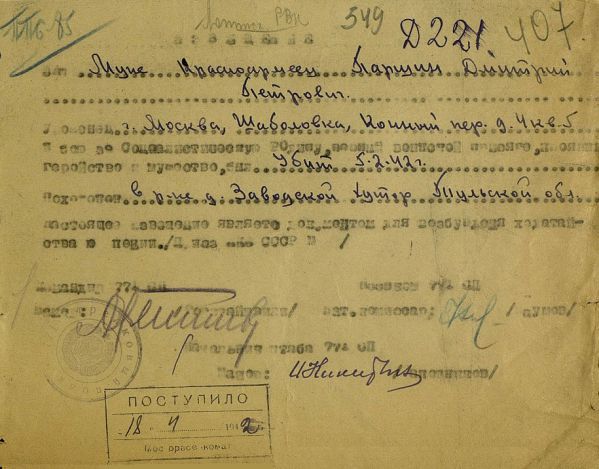 Ленинск РВК 349 Д221 407
ИЗВЕЩЕНИЕ
Ваш Муж Красноармеец Паршин Дмитрий
Петрович.
Уроженец г. Москва, Шаболовка, Конный пер. д. 4 кв. 5
В бою за Социалистическую Родину, верный воинской присяге, проявив
геройство и мужество, был Убит 5.2.42г.
Похоронен в р-не д. Заводской хутор Тульской обл.
настоящее извещение является документом для возбуждения ходатай-
ства о пенсии. /Приказ СССР N /
Командир 774 СП Военком 774 СП
бат. комиссар:
Начальник штаба 774 СП
ПОСТУПИЛО
18 4 1942